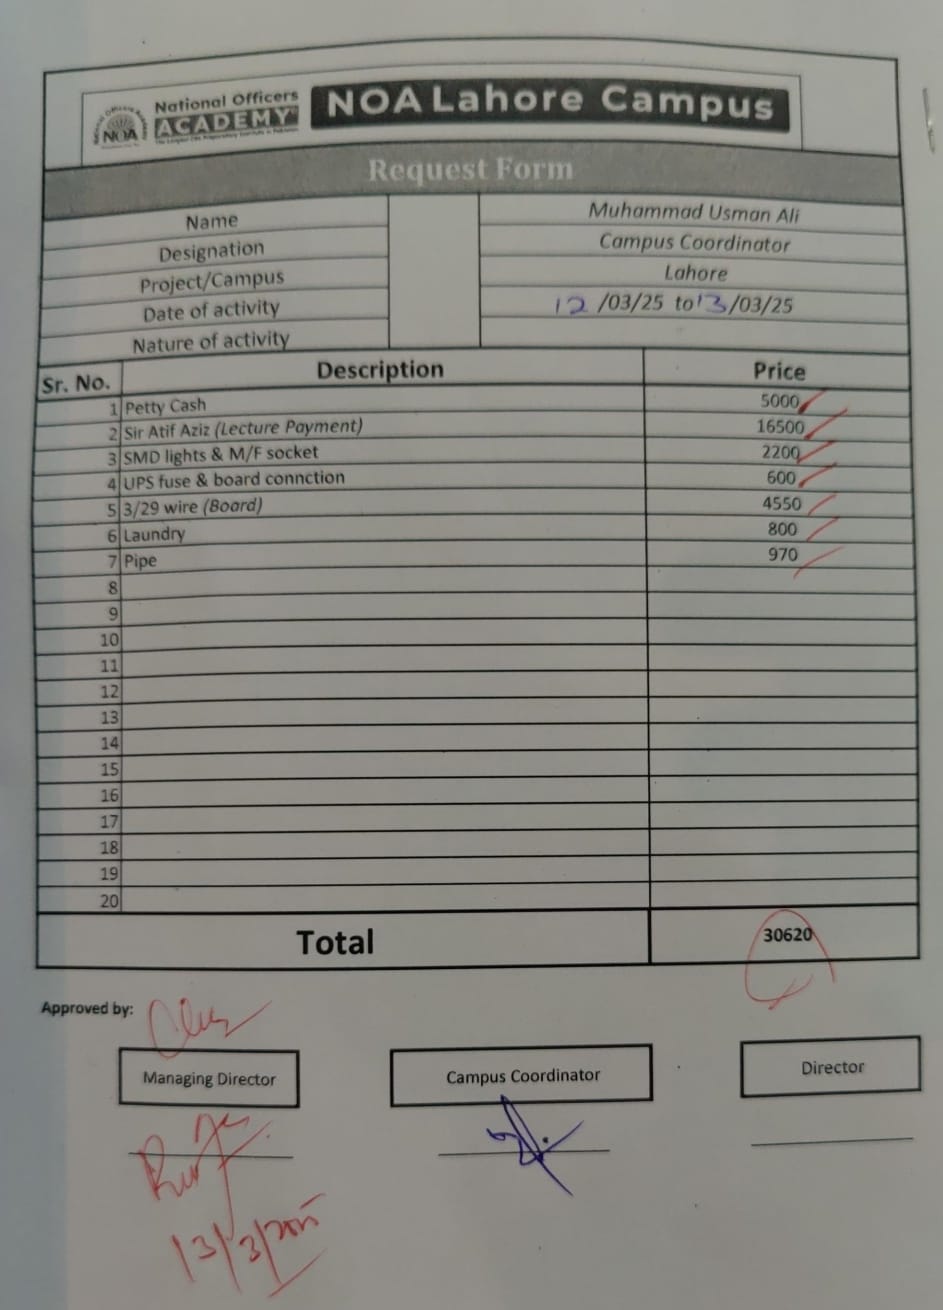 National Officers
ACADEMY
NOA
NOA Lahore Campus
Request Form
Name Muhammad Usman Ali
Designation Campus Coordinator
Project/Campus Lahore
Date of activity 12/03/25 to 13/03/25
Nature of activity
Sr. No. Description Price
1 Petty Cash 5000
2 Sir Atif Aziz (Lecture Payment) 16500
3 SMD lights & M/F socket 2200
4 UPS fuse & board connction 600
5 3/29 wire (Board) 4550
6 Laundry 800
7 Pipe 970
8
9
10
11
12
13
14
15
16
17
18
19
20
Total 30620
Approved by:
Managing Director Campus Coordinator Director
13/3/2025